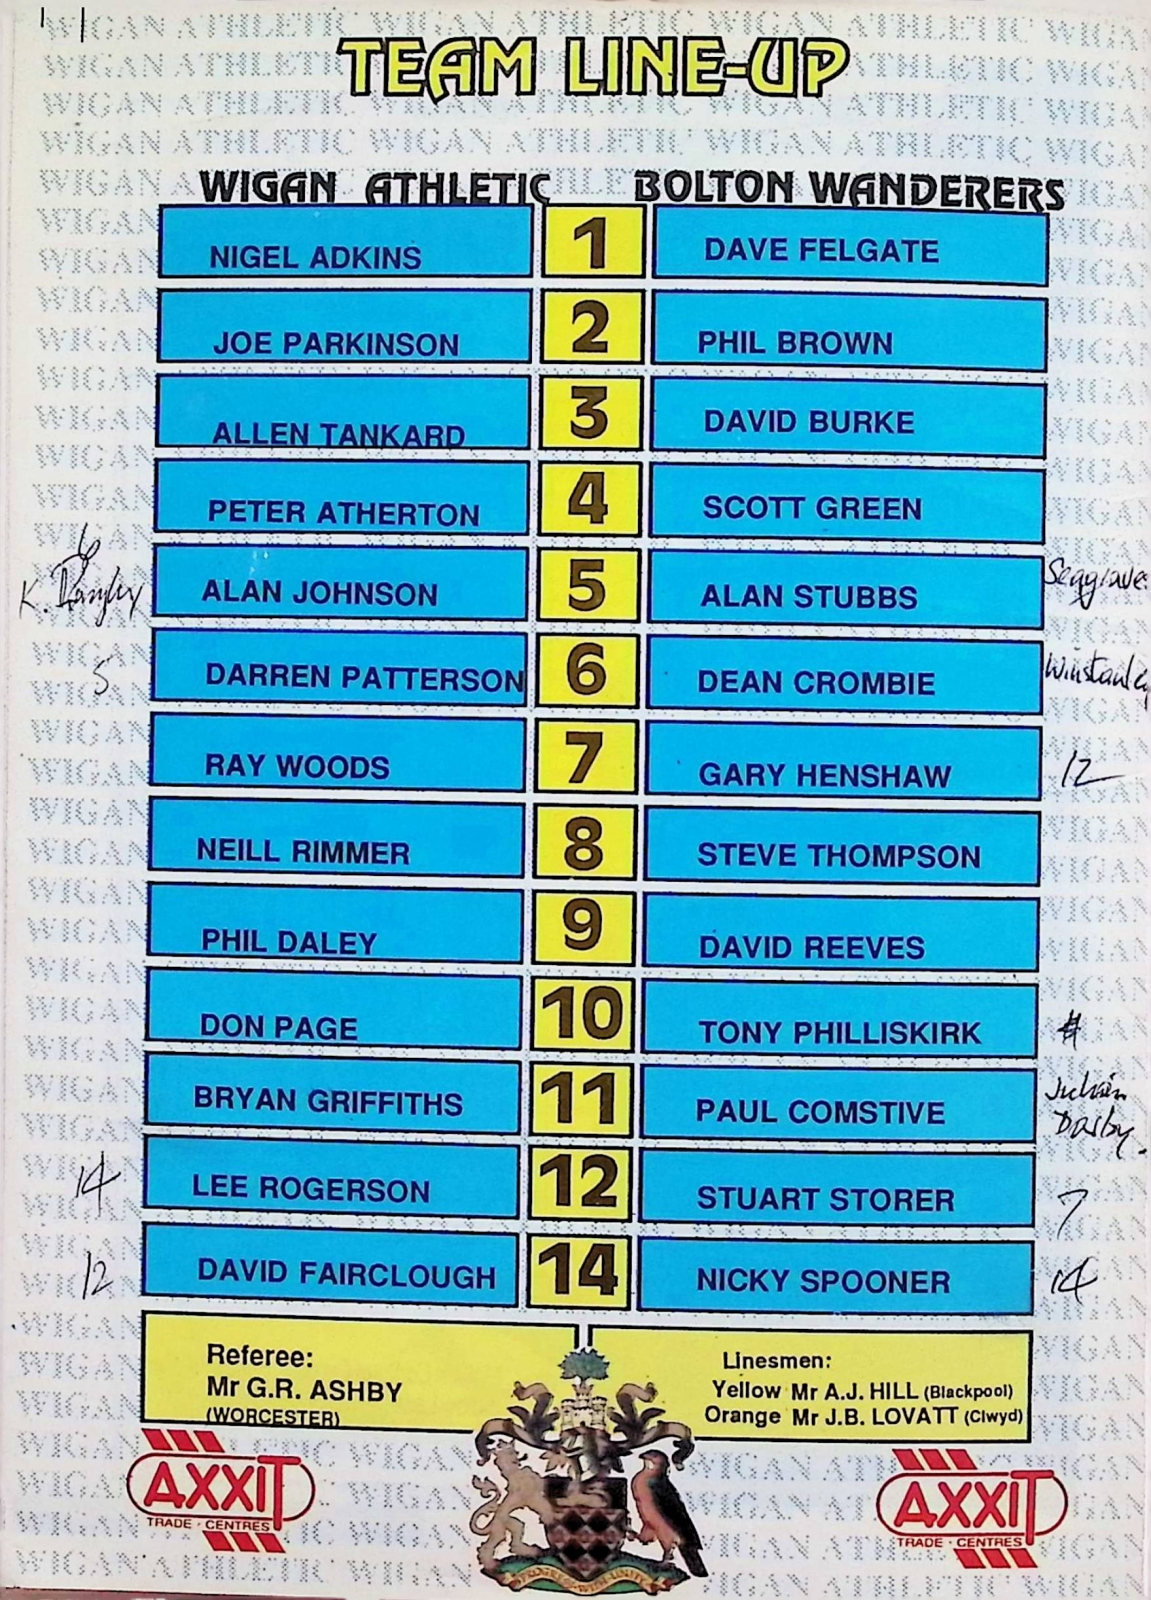 TEAM LINE-UP
WIGAN ATHLETIC BOLTON WANDERERS
NIGEL ADKINS 1 DAVE FELGATE
JOE PARKINSON 2 PHIL BROWN
ALLEN TANKARD 3 DAVID BURKE
PETER ATHERTON 4 SCOTT GREEN
6
K. ALAN JOHNSON 5 ALAN STUBBS Seagraves
5 DARREN PATTERSON 6 DEAN CROMBIE Winstanley
RAY WOODS 7 GARY HENSHAW 12
NEILL RIMMER 8 STEVE THOMPSON
PHIL DALEY 9 DAVID REEVES
DON PAGE 10 TONY PHILLISKIRK
BRYAN GRIFFITHS 11 PAUL COMSTIVE Julian
Darby.
14 LEE ROGERSON 12 STUART STORER 7
12 DAVID FAIRCLOUGH 14 NICKY SPOONER 14
Referee:
Mr G.R. ASHBY
(WORCESTER)
Linesmen:
Yellow Mr A.J. HILL (Blackpool)
Orange Mr J.B. LOVATT (Clwyd)
AXXIT
TRADE · CENTRES
AXXIT
TRADE · CENTRES